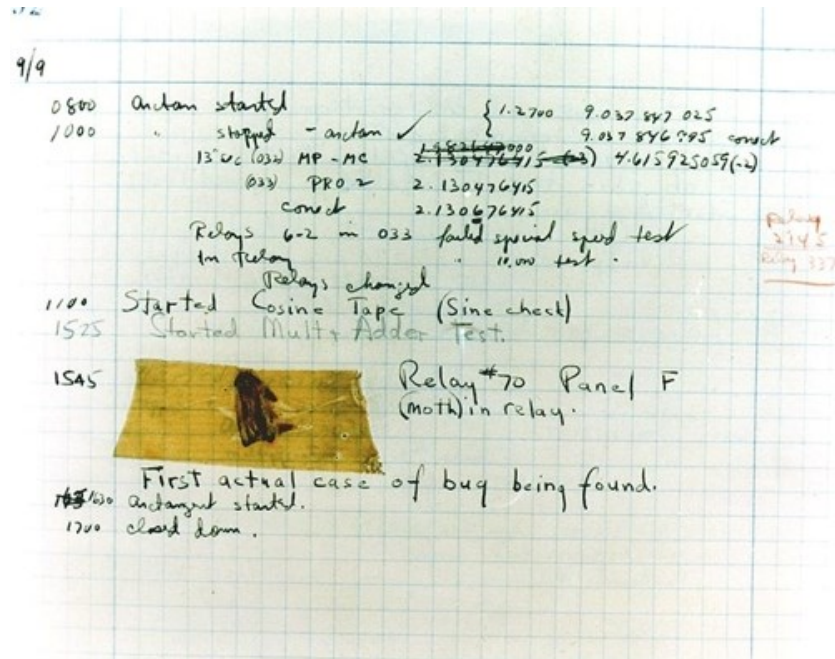 9/9
0800 Antan started { 1.2700 9.037 847 025
1000 " stopped - antan ✓ 9.037 846 995 conect
13"uc (032) MP - MC 2.130476415 (-3) 4.615925059(-2)
(033) PRO 2 2.130476415
conect 2.130676415
Relays 6-2 in 033 failed special speed test
In Relay " 10,000 test .
Relays changed
Relay
2145
Relay 337
1100 Started Cosine Tape (Sine check)
1525 Started Mult + Adder Test.
1545 Relay #70 Panel F
(moth) in relay.
First actual case of bug being found.
1630 antangent started.
1700 closed down.